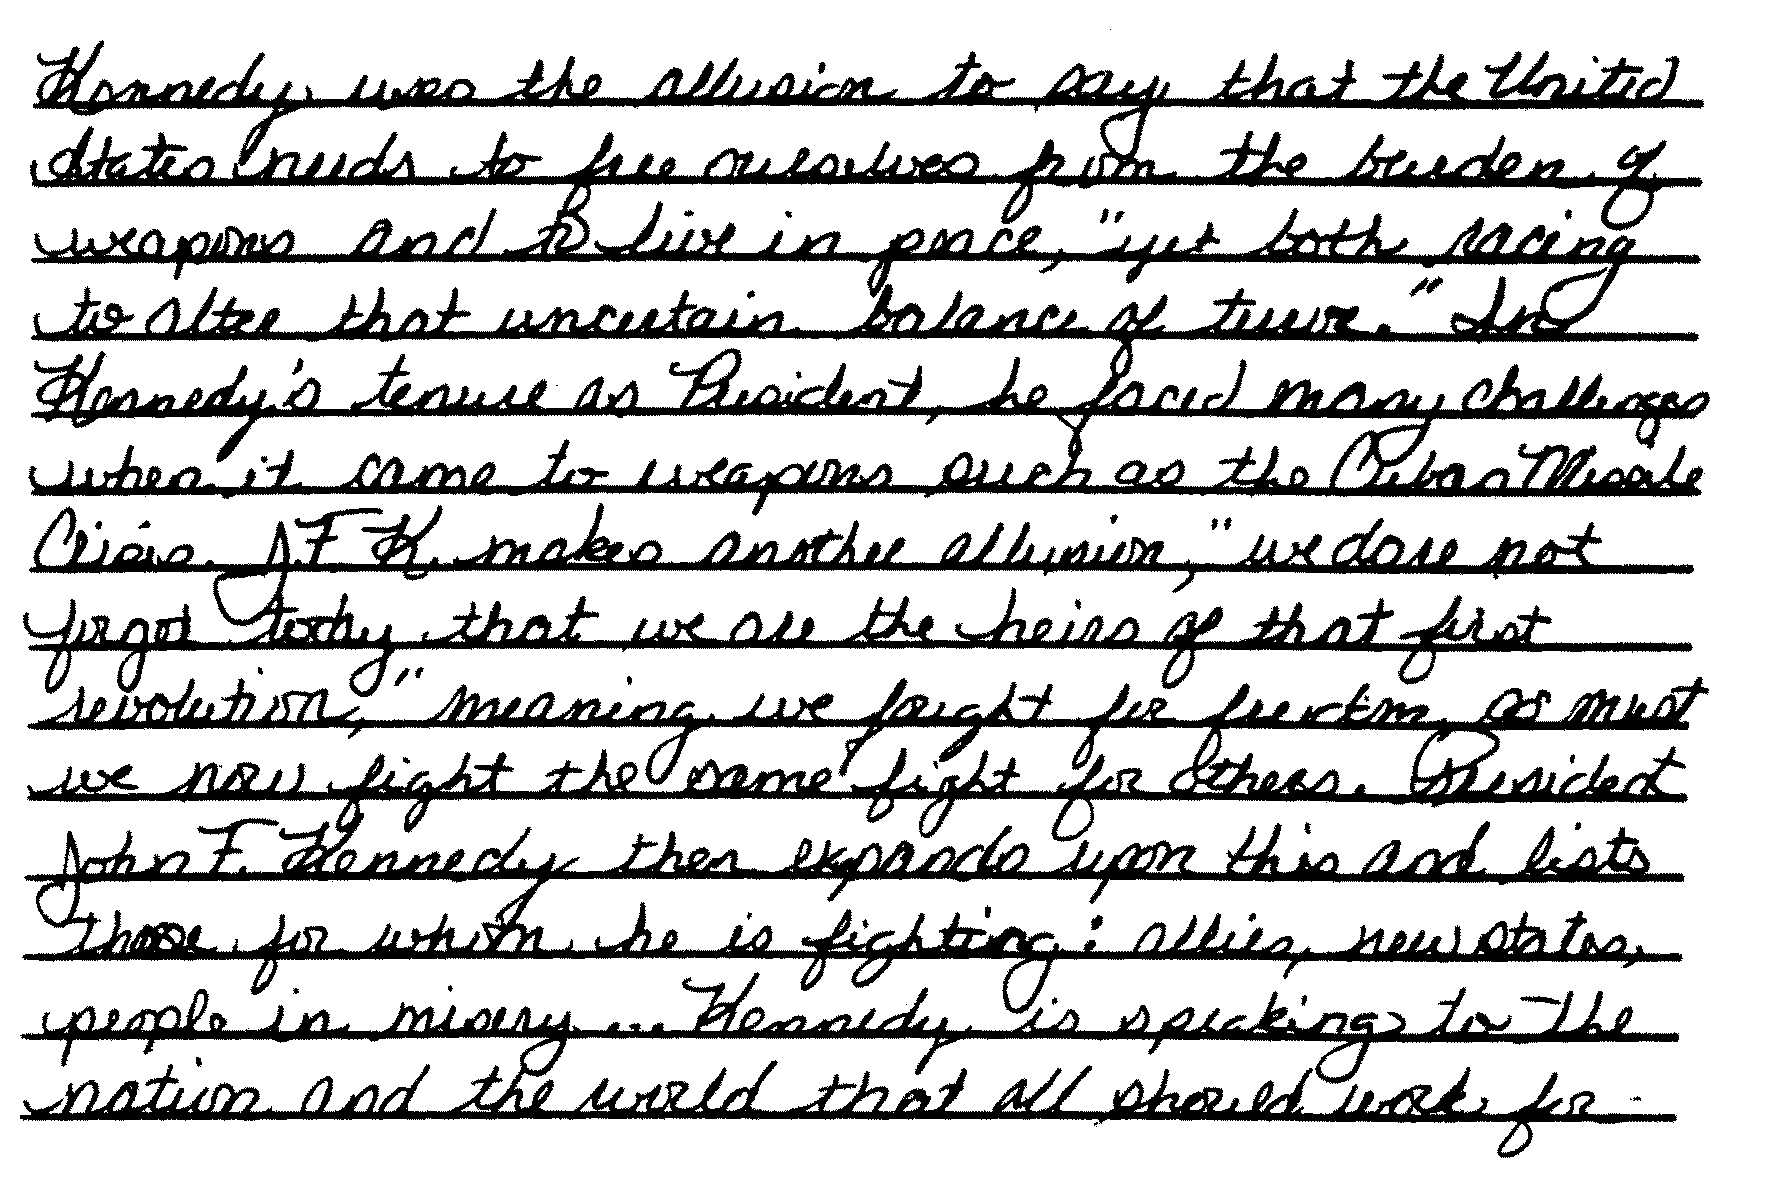 Kennedy uses the allusion to say that the United
States needs to free ourselves from the burden of
weapons and to live in peace, "yet both racing
to alter that uncertain balance of terror." In
Kennedy's tenure as President, he faced many challenges
when it came to weapons such as the Cuban Missile
Crisis. J.F.K. makes another allusion, "we dare not
forgot today that we are the heirs of that first
revolution," meaning we fought for freedom, as must
we now fight the same fight for others. President
John F. Kennedy then expands upon this and lists
those for whom he is fighting: allies, new states,
people in misery... Kennedy is speaking to the
nation and the world that all should work for